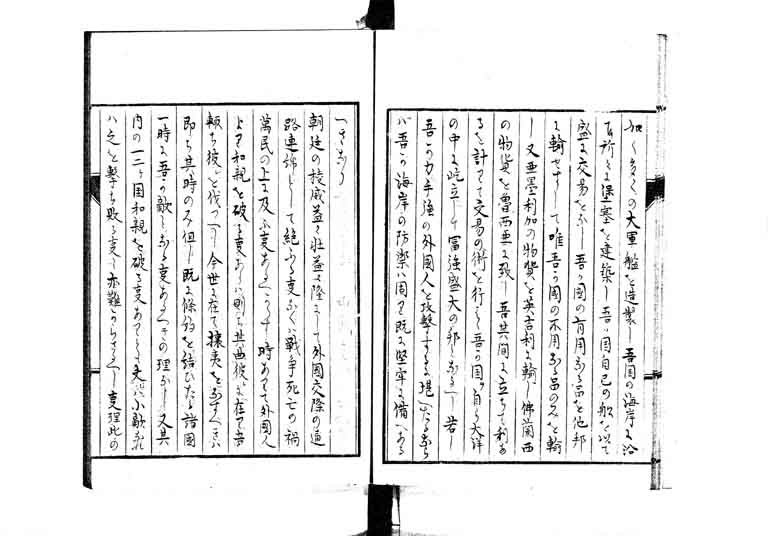 加く多くの大軍艦を造製し吾国の海岸に沿
右所々に堡塞を建築し吾国自己の船を以て
盛に交易を為し吾国の有用なる品を他邦
に輸せずして唯吾国の不用なる品のみを輸
し又亜墨利加の物貨を英吉利に輸し佛蘭西
の物貨を魯西亜に販し吾其間に立ちて利を
るを計りて交易の術を行なひ吾国自ら大洋
の中に屹立して冨強盛大の邦となるべし若し
吾の力手強の外國人を攻撃するに堪へたるなら
バ吾海岸の防禦ハ固より既に堅牢に備へある
べきなり
朝廷の権威益々壮益々隆にして外國交際の道
路連綿として絶ふる事なくバ戦争死亡の禍
萬民の上に及ぶ事あるべからず時ありて外國人
より和親を破る事あらバ則ち其曲彼に在り吾
輙ち彼を伐つべし今世に在て攘夷をなすべきハ
即ち其時のみ但し既に條約を結びたる諸國
一時に吾の敵となる事あるべきの理なし又其
内の一二ヶ国和親を破る事ありとも是ハ小敵なれ
ハ之を撃ち敗る事も亦難からざるべし事理此の